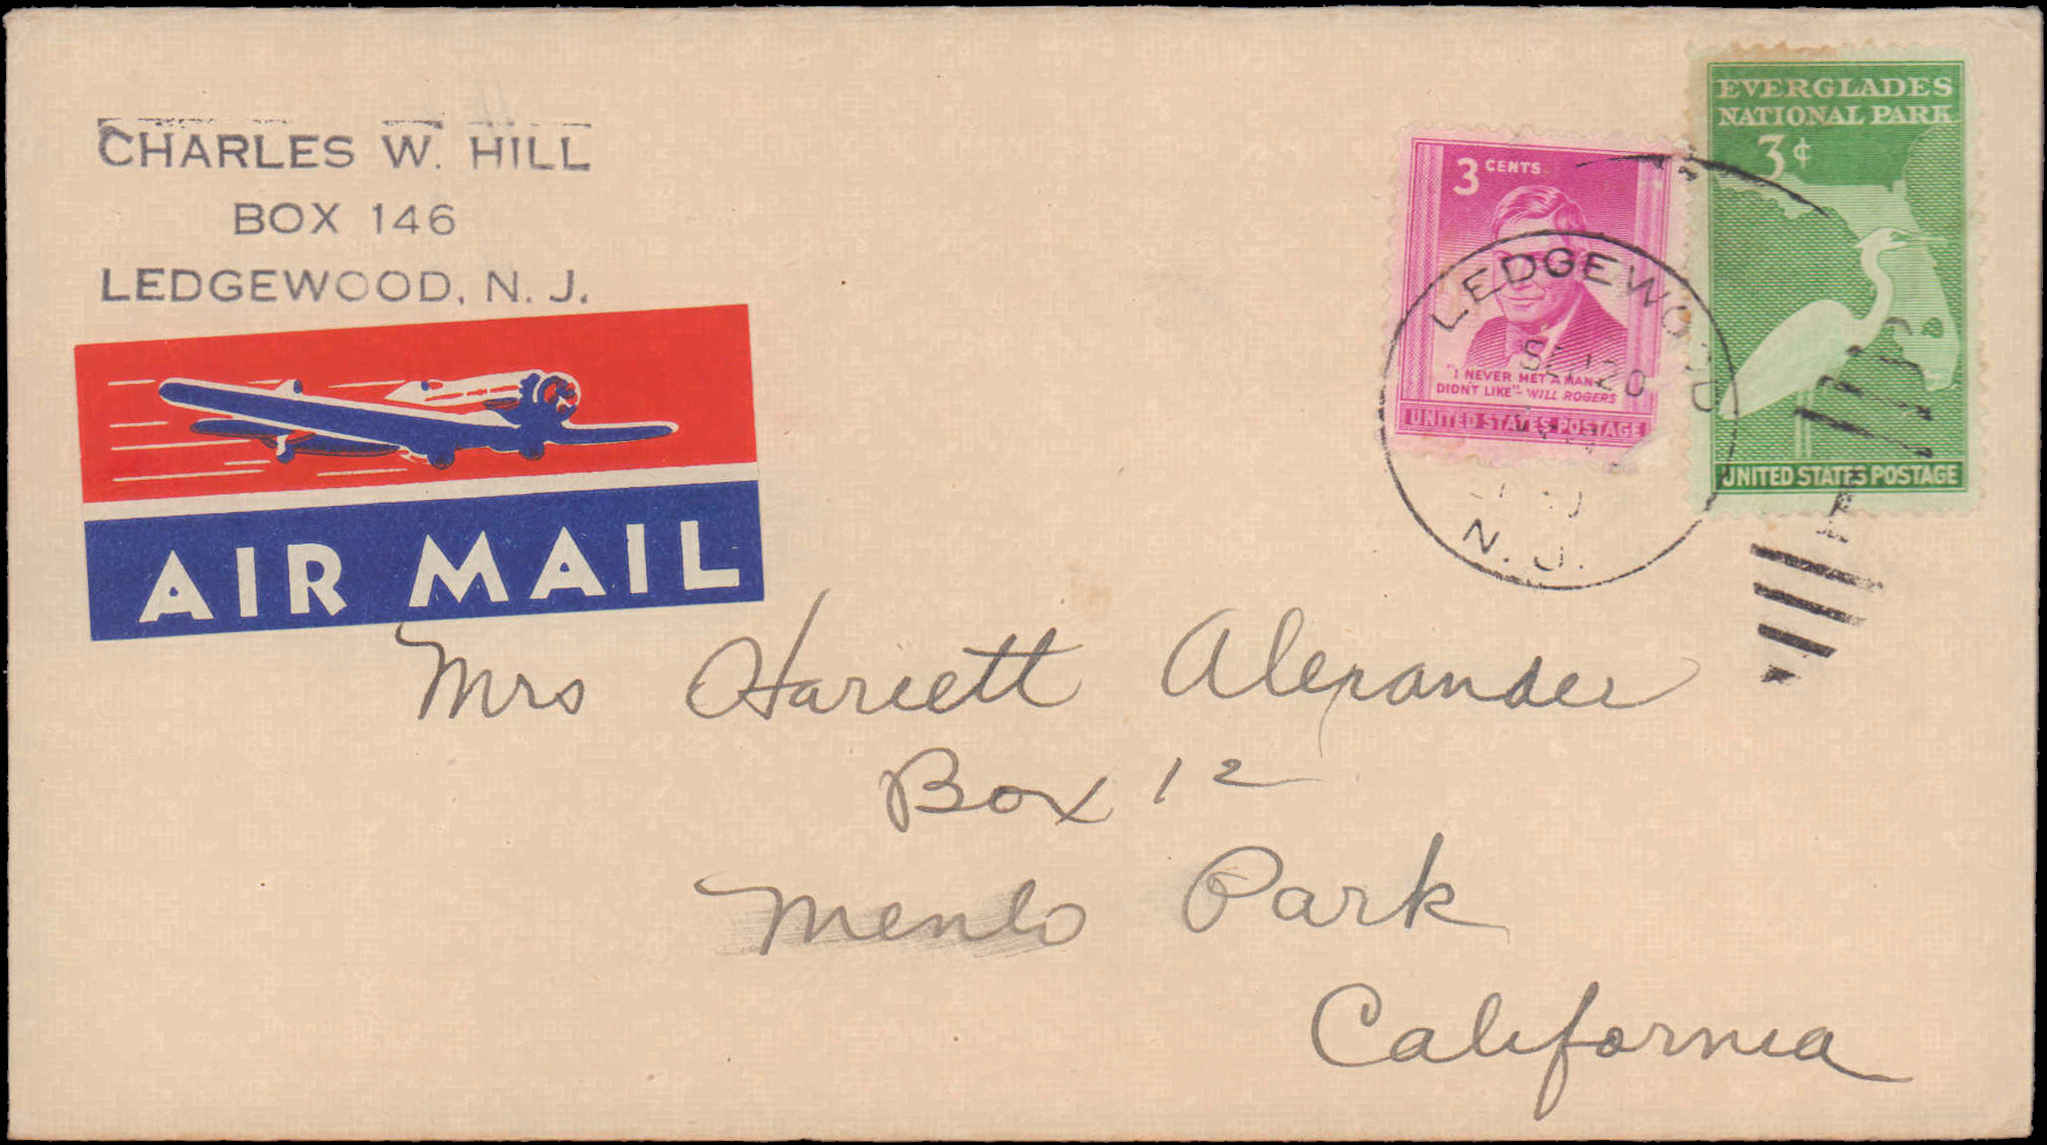 CHARLES W. HILL
BOX 146
LEDGEWOOD, N. J.
AIR MAIL
3 CENTS
"I NEVER MET A MAN I
DIDN'T LIKE" - WILL ROGERS
UNITED STATES POSTAGE
EVERGLADES
NATIONAL PARK
3¢
UNITED STATES POSTAGE
LEDGEWOOD
N. J.
Mrs Hariett Alexander
Box 12
Menlo Park
California